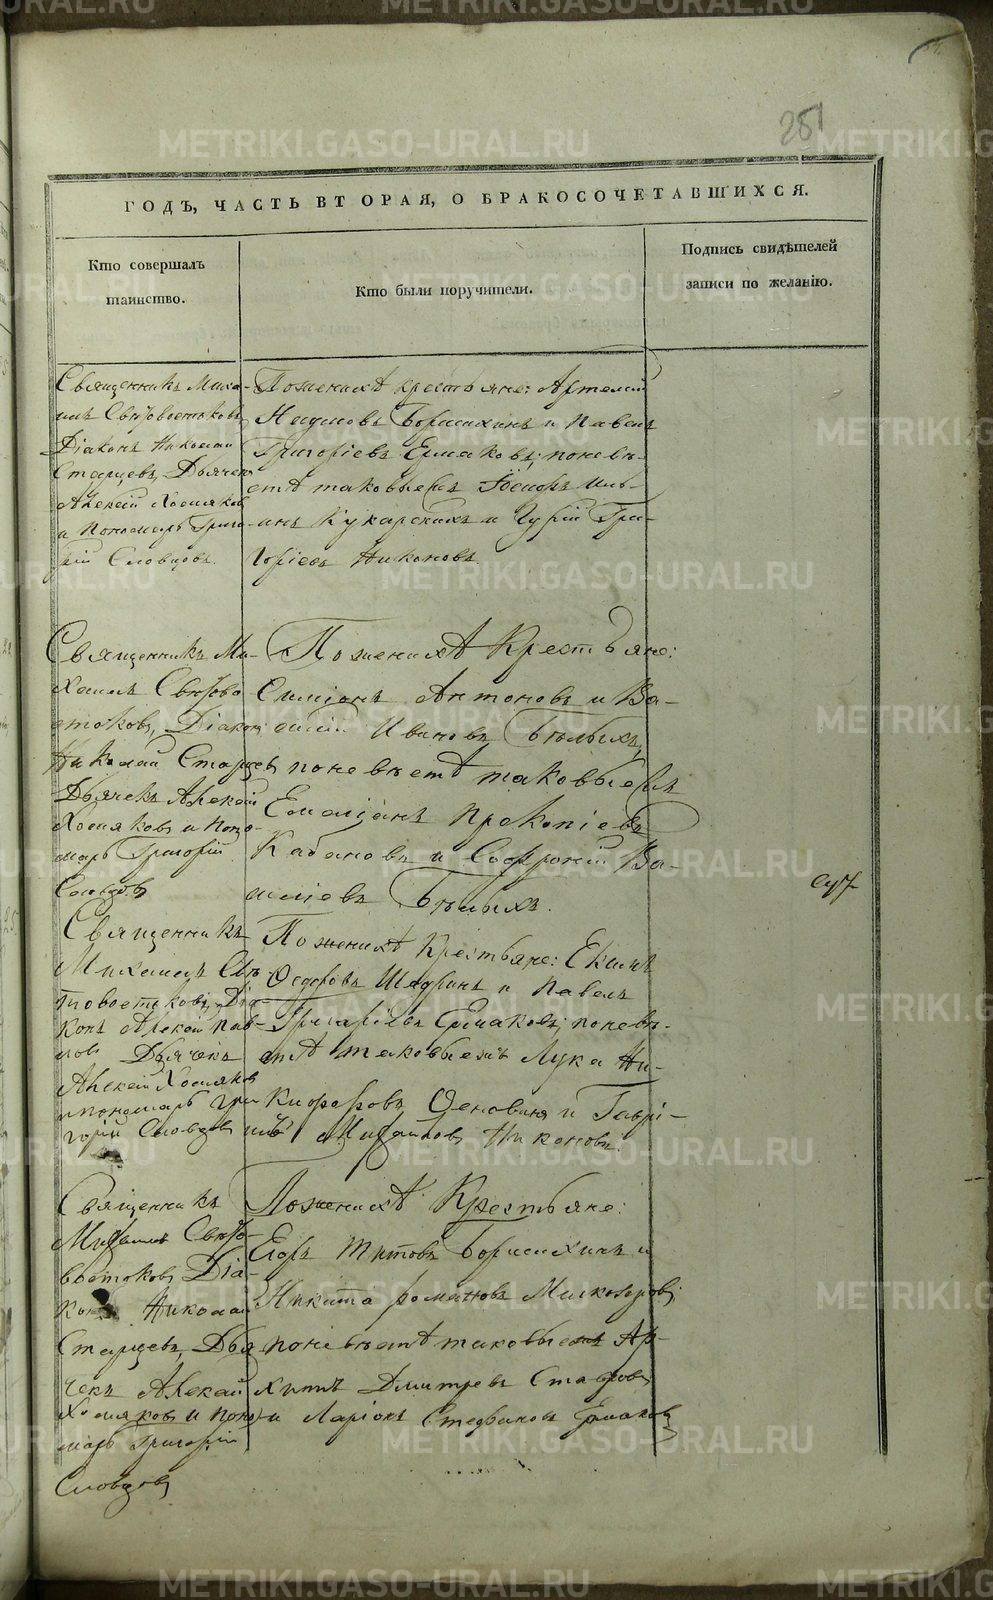 281
ГОДЪ, ЧАСТЬ ВТОРАЯ, О БРАКОСОЧЕТАВШИХСЯ.
Кто совершалъ
таинство.
Кто были поручители.
Подпись свидѣтелей
записи по желанію.
Священникъ Миха-
илъ Свѣтовостоковъ
Діаконъ Николай
Старцевъ, Дьячекъ
Алексій Хосляков
и Пономарь Григо-
рій Словцовъ.
Поженихѣ крестьяне: Артемій
Наумовъ Борисихинъ и Павелъ
Григоріевъ Ермаковъ; поневѣ-
стѣ таковыежъ Іосифъ Иль-
инъ Кукарскихъ и Гурій Гри-
горіевъ Никоновъ.
Священникъ Ми-
хаилъ Свѣтово
стоковъ, Діаконъ
Николай Старцев
Дьячекъ Алексій
Хосляковъ и Поно-
марь Григорій
Словцовъ
Поженихѣ Крестьяне:
Симіонъ Антоновъ и Ва-
силій Ивановъ Бѣлыхъ,
поневѣстѣ таковыежъ
Емеліянъ Прокопіевъ
Кабановъ и Софроній Ва-
силіевъ Бѣлыхъ.
Священникъ
Михаилъ Свѣ-
товостоковъ, Діа-
конъ Алексій Пав-
лов Дьячекъ
Алексій Хосляков
и пономарь Гри
горій Словцовъ
Поженихѣ Крестьяне: Екимъ
Федоровъ Шадринъ и Павелъ
Григоріевъ Ермаковъ; поневѣ-
стѣ таковыежъ Лука Ни-
кифоровъ и Гаврі-
илъ Михайловъ Никоновъ.
Священникъ
Михаилъ Свѣто-
востоковъ Діа-
конъ Николай
Старцевъ, Дья
чекъ Алексій
Хосляковъ и Поно
марь Григорій
Словцовъ
Поженихѣ Крестьяне:
Егоръ Титовъ Борисихинъ и
Никита романовъ
поневѣстѣ таковыежъ Ар-
хипъ Дмитревъ
и Ларіонъ Стефановъ Ермаковъ
METRIKI.GASO-URAL.RU